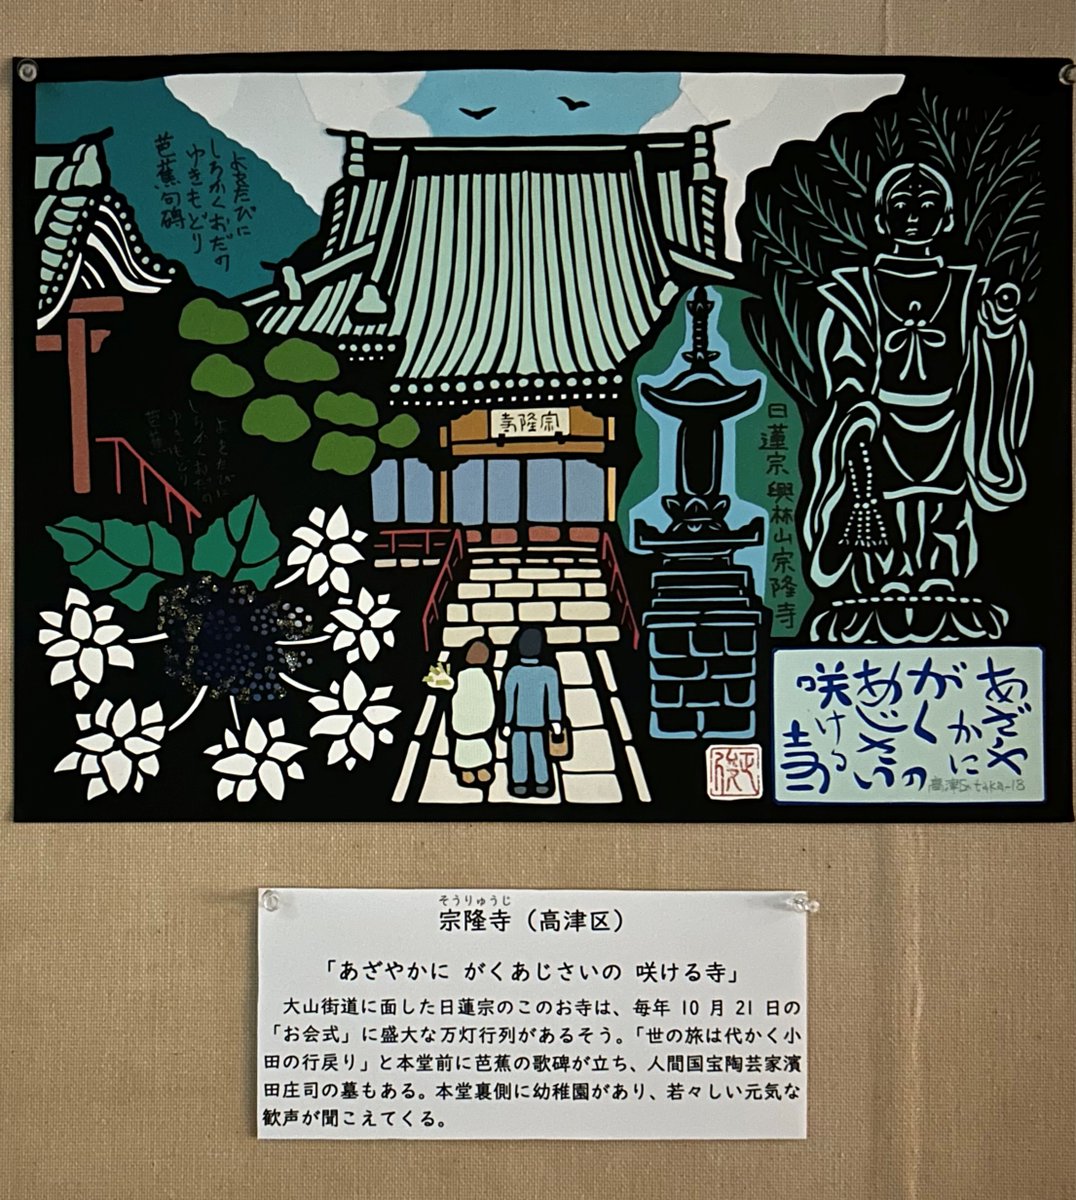 よをたびに
しろかくおだの
ゆきもどり
芭蕉句碑
宗隆寺
日蓮宗興林山宗隆寺
あざや
かに
がく
あじさいの
咲ける
寺
高津
そうりゅうじ
宗隆寺（高津区）
「あざやかに がくあじさいの 咲ける寺」
大山街道に面した日蓮宗のこのお寺は、毎年 10 月 21 日の
「お会式」に盛大な万灯行列があるそう。「世の旅は代かく小
田の行戻り」と本堂前に芭蕉の歌碑が立ち、人間国宝陶芸家濱
田庄司の墓もある。本堂裏側に幼稚園があり、若々しい元気な
歓声が聞こえてくる。